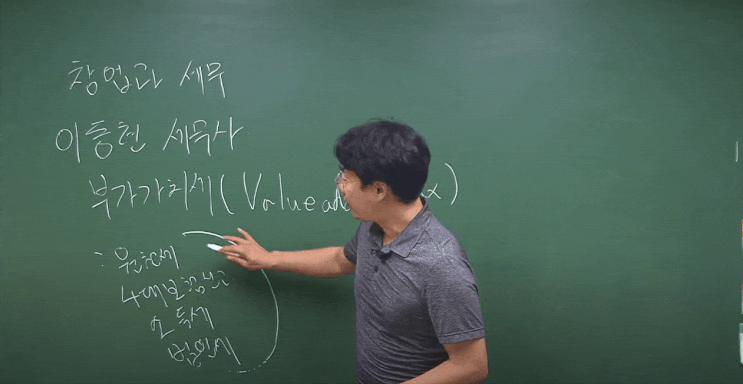 창업과 세무
이동현 세무사
부가가치세(Value ad x)
: 원천세
4대보험신고
소득세
법인세